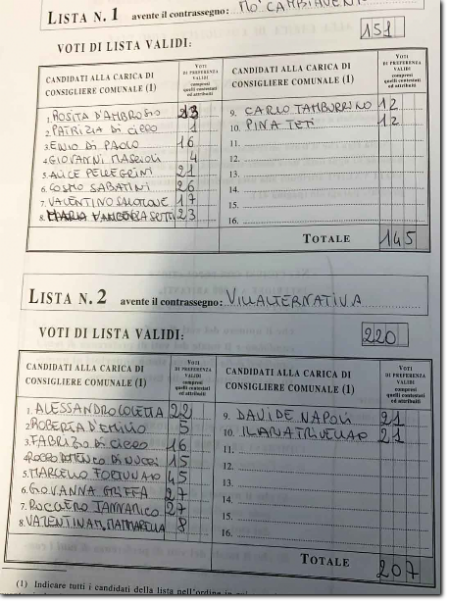 LISTA N. 1 avente il contrassegno: MO' CAMBIAVENTO
VOTI DI LISTA VALIDI: 151
CANDIDATI ALLA CARICA DI CONSIGLIERE COMUNALE (1)
VOTI DI PREFERENZA VALIDI compresi quelli contestati ed attribuiti
CANDIDATI ALLA CARICA DI CONSIGLIERE COMUNALE (1)
VOTI DI PREFERENZA VALIDI compresi quelli contestati ed attribuiti
1. ROSITA D'AMBROSIO 13
2. PATRIZIA DI CICCO 1
3. ENNIO DI PAOLO 16
4. GIOVANNI MASCIOLI 4
5. ALICE PELLEGRINI 21
6. COSMO SABATINI 26
7. VALENTINO 17
8. 23
9. CARLO TAMBURRINO 12
10. PINA TETI 12
11.
12.
13.
14.
15.
16.
TOTALE 145
LISTA N. 2 avente il contrassegno: VILLALTERNATIVA
VOTI DI LISTA VALIDI: 220
CANDIDATI ALLA CARICA DI CONSIGLIERE COMUNALE (1)
VOTI DI PREFERENZA VALIDI compresi quelli contestati ed attribuiti
CANDIDATI ALLA CARICA DI CONSIGLIERE COMUNALE (1)
VOTI DI PREFERENZA VALIDI compresi quelli contestati ed attribuiti
1. ALESSANDRO COLETTA 22
2. ROBERTA D'EMILIO 5
3. FABRIZIO DI CICCO 16
DI NUCCI 15
5. MARCELLO FORTUNATO 45
6. GIOVANNA GRIFFA 27
7. RUGGERO IANNARICO 27
8. VALENTINA M. MAMMARELLA 8
9. DAVIDE NAPOLI 21
10. ILARIA TRIVELLATO 21
11.
12.
13.
14.
15.
16.
TOTALE 207
(1) Indicare tutti i candidati della lista nell'ordine in cui